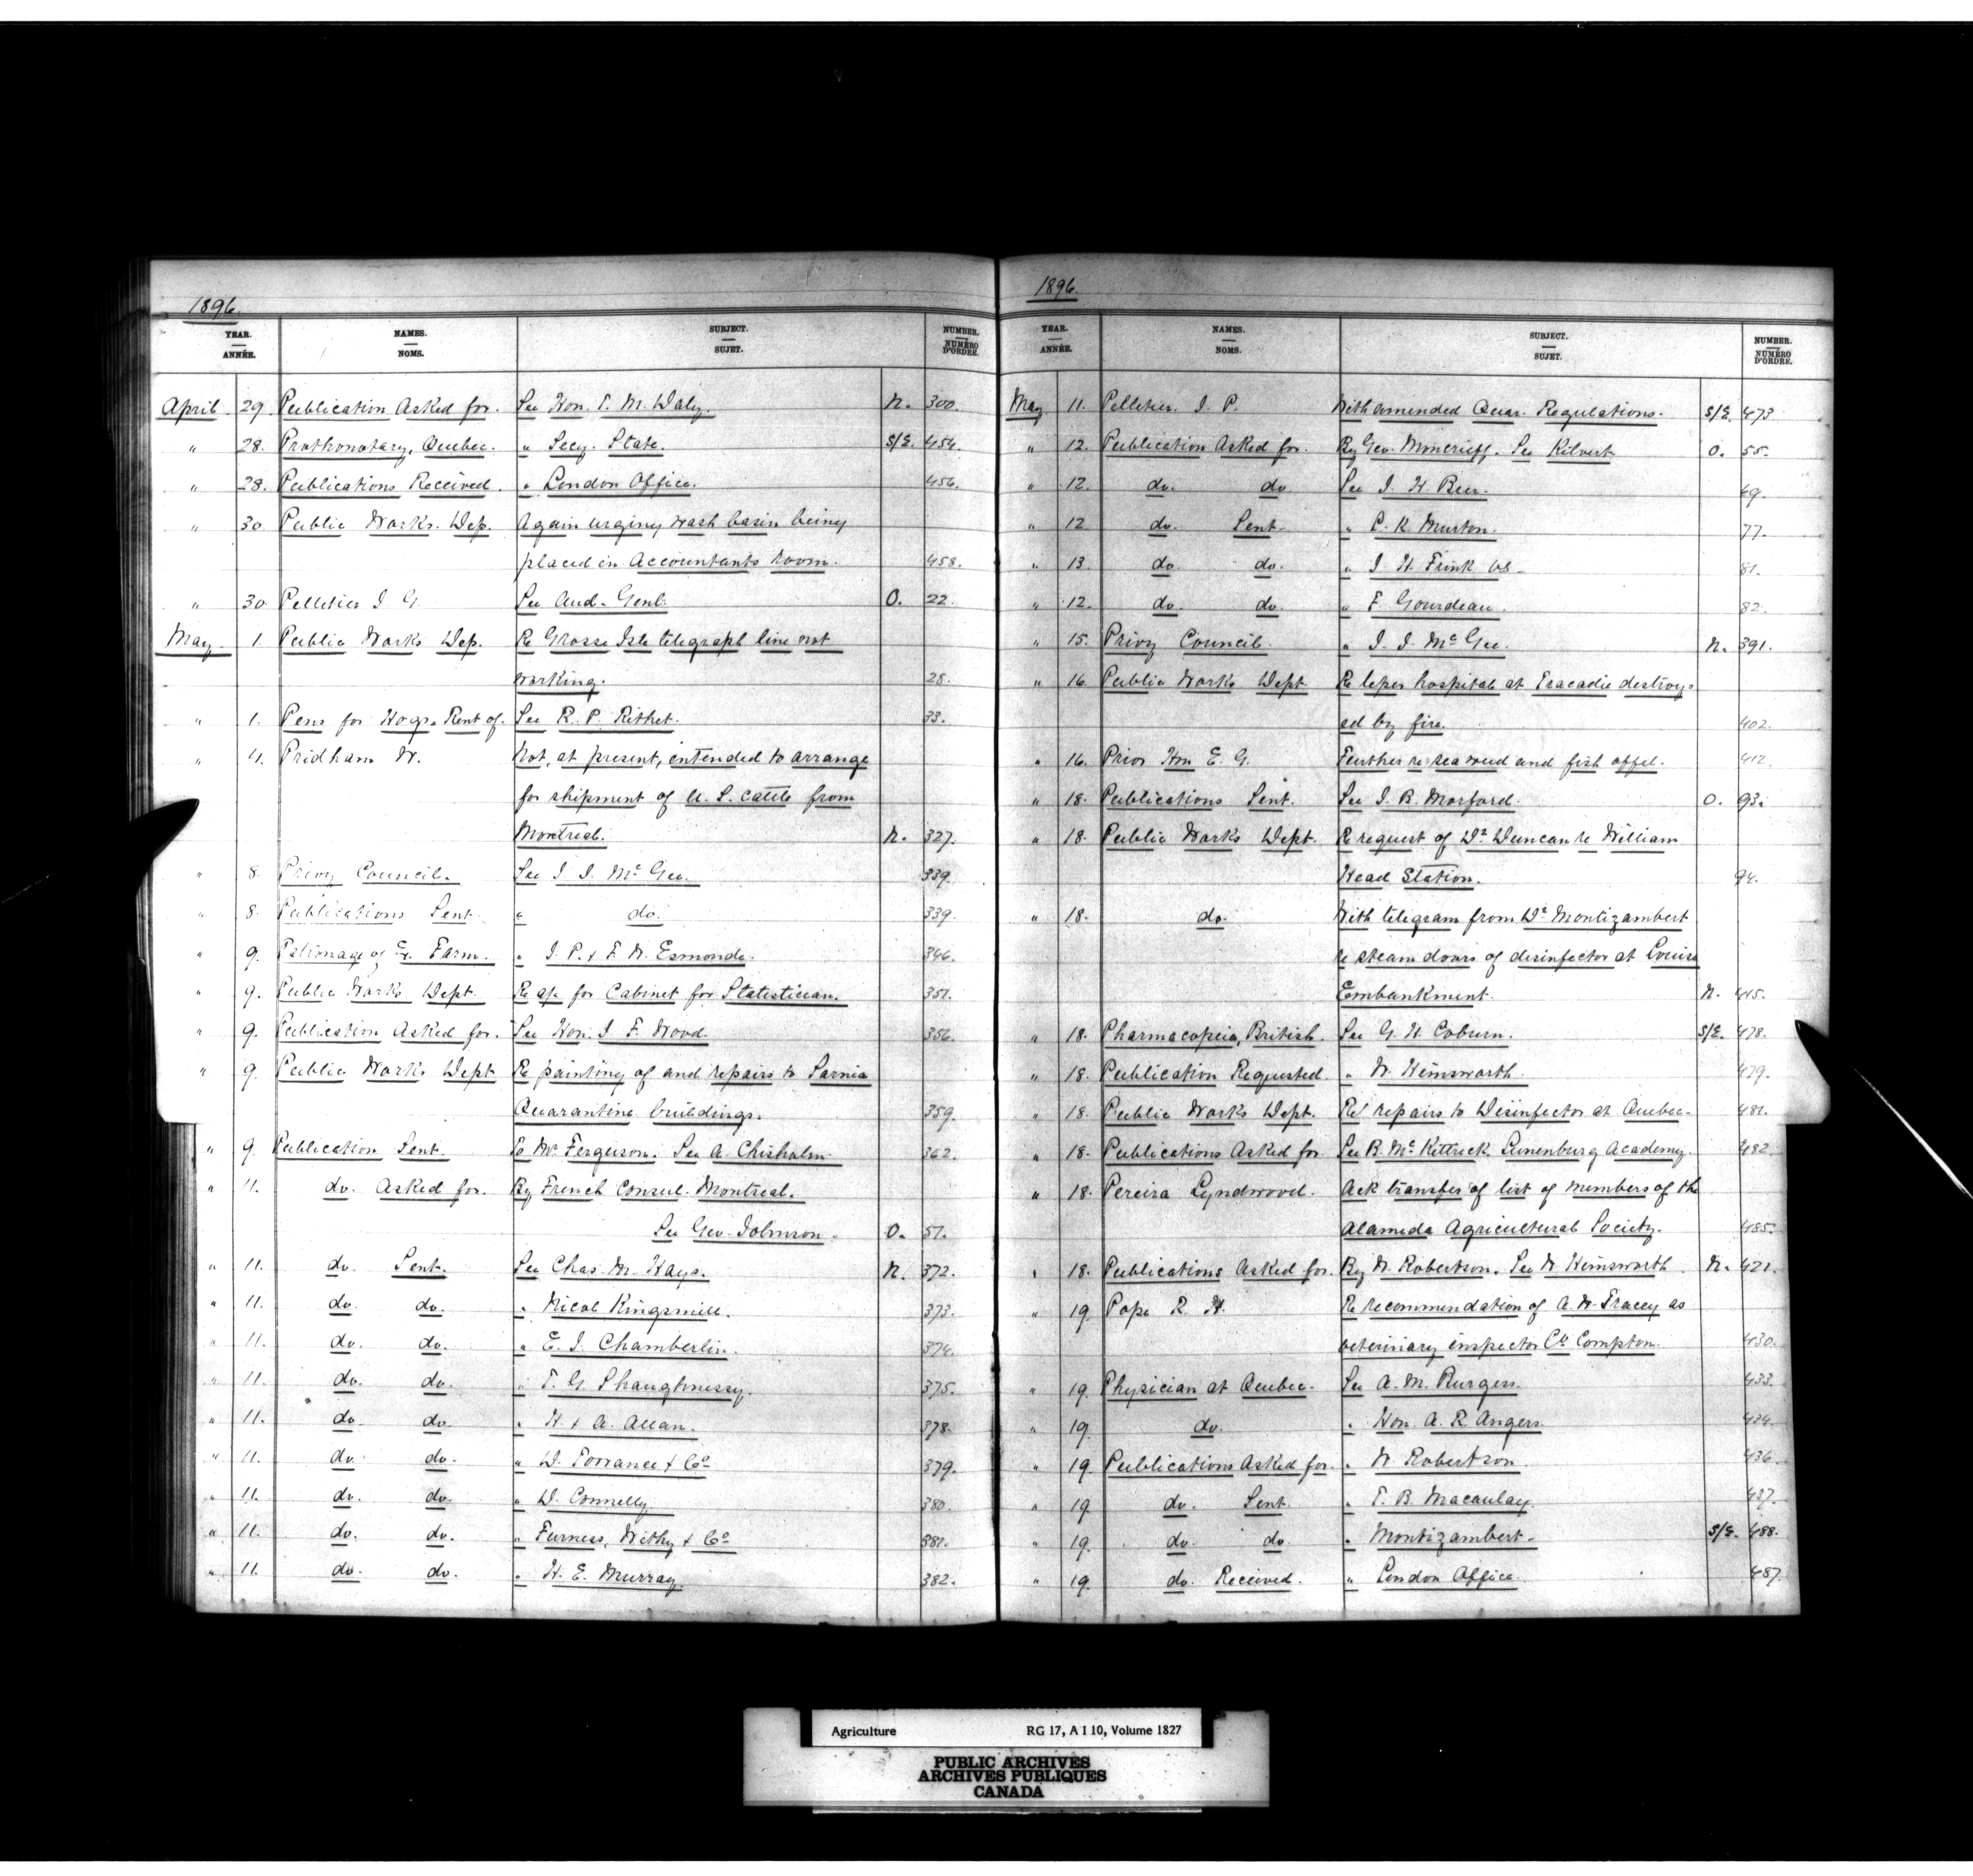 1896.
YEAR. ANNÉE. NAMES. NOMS. SUBJECT. SUJET. NUMBER. NUMÉRO D'ORDRE.
April 29. Publication Asked for. See Hon. T. M. Daly. N. 300.
" 28. Prothonotary, Quebec. " Secy. State. S/E. 454.
" 28. Publications Received. " London Office. 456.
" 30 Public Works. Dep. Again urging wash basin being
placed in Accountants room. 458.
" 30 Pelletier J G. See Aud. Genl. O. 22.
May 1. Public Works Dep. Re Grosse Isle telegraph line not
working. 28.
" 1. Pens for Hogs. Rent of. See R. P. Rithet. 33.
" 4. Pridham W. Not, at present, intended to arrange
for shipment of U. S. cattle from
Montreal. N. 327.
" 8. Privy Council. See J. J. McGee. 339.
" 8. Publications Sent " do. 339.
" 9. Patronage of Ex. Farm. " J. P. & F. W. Esmonde. 346.
" 9. Public Works Dept. Re ap. for Cabinet for Statistician. 351.
" 9. Publication Asked for. See Hon. J. F. Wood 356.
" 9. Public Works Dept Re painting of and repairs to Sarnia
Quarantine buildings. 359.
" 9. Publication Sent. To Mr Ferguson. See A. Chisholm 362.
" 11. do. Asked for. By French Consul. Montreal.
See Geo. Johnson. O. 51.
" 11. do. Sent. See Chas. M. Hays. N. 372.
" 11. do. do. " Nicol Kingsmill. 373.
" 11. do. do. " E. J. Chamberlin. 374.
" 11. do. do. " T. G. Shaughnessy. 375.
" 11. do. do. " H. & A. Allan. 378.
" 11. do. do. " D. Torrance & Co 379.
" 11. do. do. " D. Connelly. 380.
" 11. do. do. " Furness, Withy & Co 381.
" 11. do. do. " H. E. Murray. 382.
1896.
YEAR. ANNÉE. NAMES. NOMS. SUBJECT. SUJET. NUMBER. NUMÉRO D'ORDRE.
May 11. Pelletier. J. P. With amended Quar. Regulations. S/E. 473
" 12. Publication Asked for. By Geo. Moncrieff. See Kilvert O. 55.
" 12. do. do. See J. H. 69.
" 12 do. Sent " C. R. Murton. 77.
" 13. do. do. " J. H. Frink 81.
" 12. do. do. " F. Gourdeau. 82.
" 15. Privy Council. " J. J. McGee. N. 391.
" 16. Public Works Dept Re leper hospital at Tracadie destroy-
ed by fire. 402.
" 16. Prior Hon E. G. Further re sea weed and fish offal. 412.
" 18. Publications Sent. See J. B. Morford. O. 93.
" 18. Public Works Dept. Re request of Dr. Duncan re William
Head Station. 94.
" 18. do. With telegram from Dr. Montizambert
re steam doors of disinfector at Louise
Embankment. N. 415.
" 18. Pharmacopeia, British. See G. H. Coburn. S/E. 478.
" 18. Publication Requested. " W. Hemsworth. 479.
" 18. Public Works Dept. Re repairs to Disinfector at Quebec. 481.
" 18. Publications Asked for See B. McKittrick Lunenburg Academy. 482.
" 18. Pereira Lyndwood. Ack transfer of list of members of the
Alameda Agricultural Society. 485.
" 18. Publications Asked for. By W. Robertson. See W Hemsworth. N. 421.
" 19. Pope R. H. Re recommendation of A. W. Tracey as
veterinary inspector Co Compton. 430.
" 19. Physician at Quebec. See A. M. Burgess. 433.
" 19. do. " Hon. A. R. Angers. 434.
" 19. Publications Asked for. " W Robertson. 436.
" 19. do. Sent. " T. B. Macaulay. 437.
" 19. do. do " Montizambert. S/E. 488.
" 19. do. Received. " London Office. 487.
Agriculture RG 17, A I 10, Volume 1827
PUBLIC ARCHIVES
ARCHIVES PUBLIQUES
CANADA